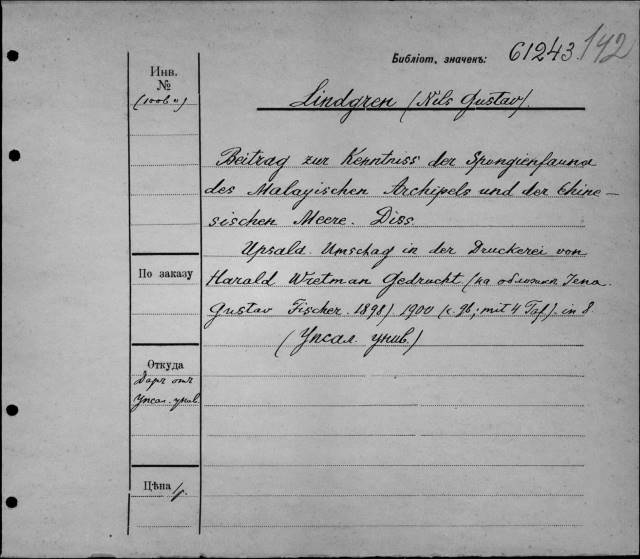 Библіот, значекъ: 61243.
142
Инв.
№
Lindgren (Nils Gustav).
Beitrag zur Kenntniss der Spongienfauna
des Malayischen Archipels und der Chine-
sischen Meere. Diss.
Upsala. Umschag in der Druckerei von
По заказу
Harald Wretman Gedruckt (на обложкѣ Jena.
Gustav Fischer. 1898) 1900 (с. 96; mit 4 Taf). in 8.
(Упсал. унив.)
Откуда
Даръ отъ
Упсал. унив.
Цѣна